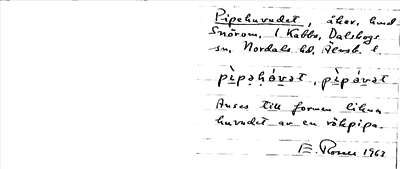 Pipehuvudet, åker, hmd
Snörom, l. Kabbo, Dalskogs
sn, Nordals hd, Älvsb. l.
pìpəhʉ́vət, pìpʉ́vət
Anses till formen likna
huvudet av en rökpipa.
E. Rosell 1962